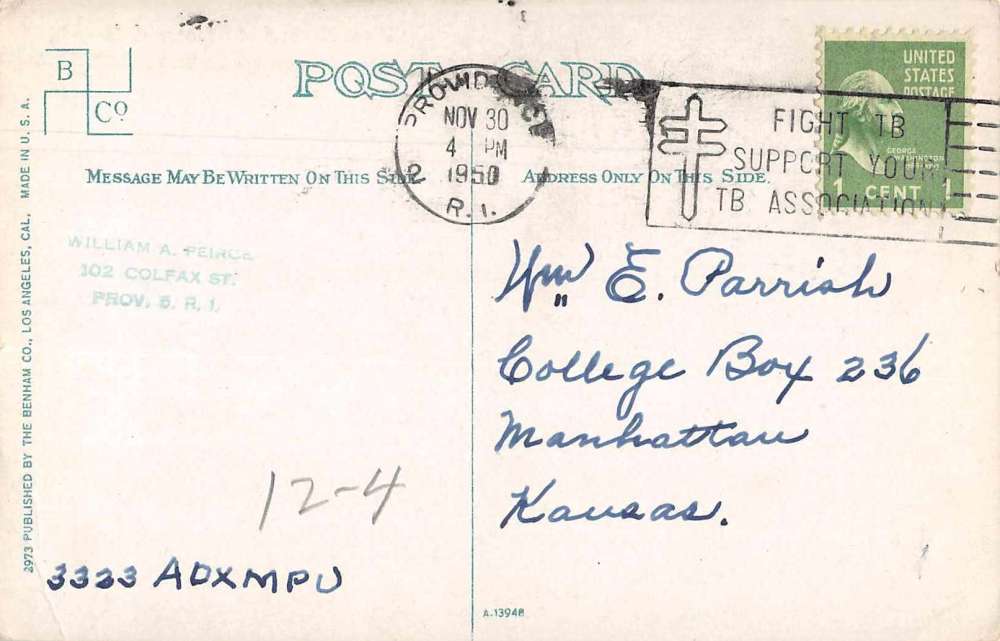 B
Cº
POST CARD
UNITED
STATES
POSTAGE
GEORGE
WASHINGTON
1 CENT 1
PROVIDENCE
NOV 30
4 PM
1950
2
R. I.
FIGHT TB
SUPPORT YOUR
TB ASSOCIATION
MESSAGE MAY BE WRITTEN ON THIS SIDE.
ADDRESS ONLY ON THIS SIDE.
WILLIAM A. PEIRCE
102 COLFAX ST.
PROV. 5, R. I.
Wm E. Parrish
College Box 236
Manhattan
Kansas.
12-4
3323 ADXMPU
2973 PUBLISHED BY THE BENHAM CO., LOS ANGELES, CAL. MADE IN U. S. A.
A-13948